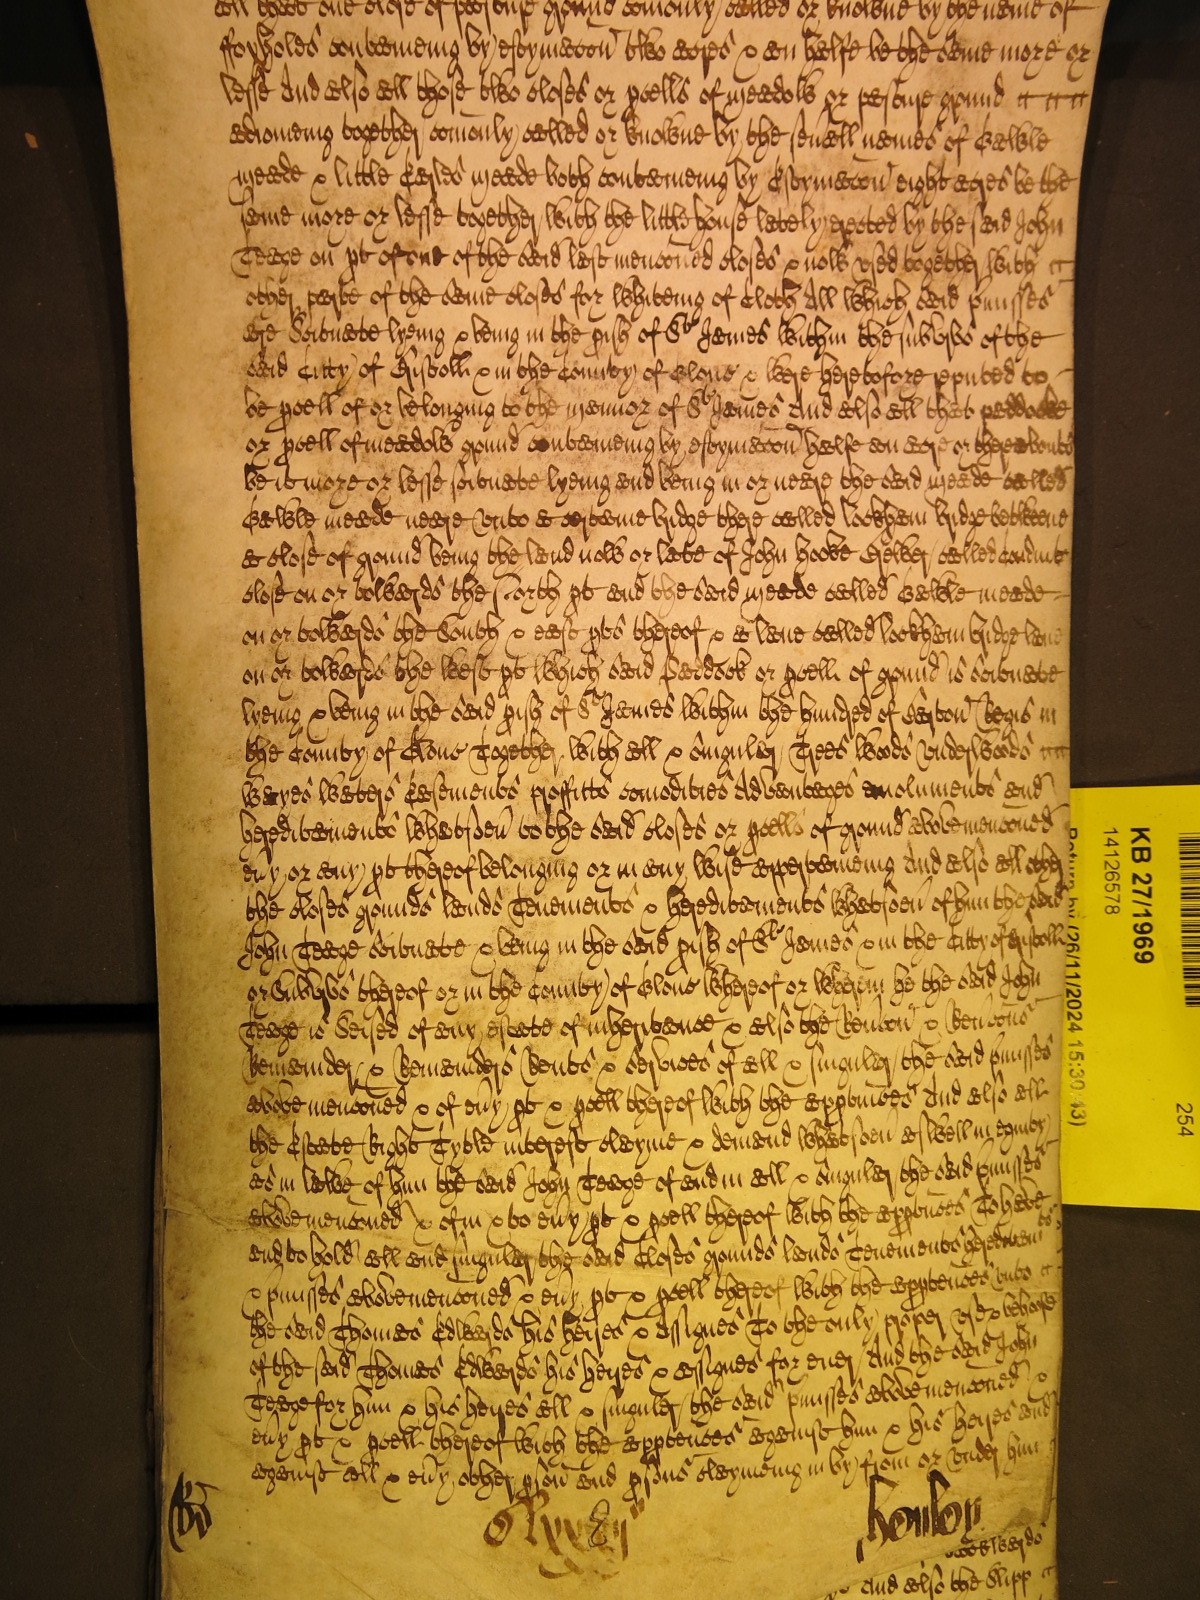 all that one close of pasture ground comonly called or knowne by the name of
ffoxholes conteineing by estymacon two acres & an halfe be the same more or
lesse And also all those two closes or pcells of meadow or pasture ground
adioineing together comonly called or knowne by the seuall names of
meade & little meade both conteineing by Estymacon eight acres be the
same more or lesse together with the little house lately erected by the said John
Teage on pt of one of the said last menconed closes & now vsed together with
other parte of the same closes for whiteing of Cloth All which said pmisses
are Scituate lyeing & being in the pish of St James within the suburbs of the
said Citty of Bristoll & in the County of Glouc & were heretofore reputed to
be pcell of or belonging to the mannor of St James And also all that paddocke
or pcell of meadow ground conteineing by estymacon halfe an acre or thereabouts
be it more or lesse scituate lyeing and being in or neare the said meade called
meade neare vnto a certaine bridge there called lockham bridge betweene
a close of ground being the land now or late of John called Conduit
close on or towards the North pt and the said meade called meade
on or towards the South & east pts thereof & a lane called lockham bridge lane
on or towards the west pt which said Paddock or pcell of ground is scituate
lyeing & being in the said pish of St James within the hundred of Barton Regis in
the County of Glouc Together with all & singuler Trees woods vnderwoods
wayes waters Easements proffitts comodities Advantages emoluments and
hereditaments whatsoeu to the said closes or pcells of ground abovemenconed
euy or any pt thereof belonging or in any wise apperteineing And also all other
the closes grounds lands Tenements & hereditaments whatsoeu of him the said
John Teage scituate & being in the said pish of St James & in the Citty of Bristoll
or Suburbs thereof or in the County of Glouc whereof or wherein he the said John
Teage is Seised of any estate of inheritance & also the Reucon & Reucons
Remainder & Remainders Rents & services of all & singuler the said pmisses
above menconed & of euy pt & pcell thereof with the apptences And also all
the Estate Right Tytle interest clayme & demand whatsoeu aswell in equity
as in lawe of him the said John Teage of and in all & singuler the said pmisses
abovemenconed & of in & to euy pt & pcell thereof with the apptences To have
and to hold all and singuler the said Closes grounds lands Tenements hereditamts
& pmisses abovemenconed & euy pt & pcell thereof with the apptences vnto
the said Thomas Edwards his heires & assignes To the only proper vse & behoofe
of the said Thomas Edwards his heires & assignes for euer And the said John
Teage for him & his heires all & singuler the said pmisses abovemenconed &
euy pt & pcell thereof with the apptences against him & his heires and
against all & euy other pson and psons claymeing in by from or vnder him
And also the Slipp
KB 27/1969
14126578
254
Return by (26/11/2024 15:30:43)